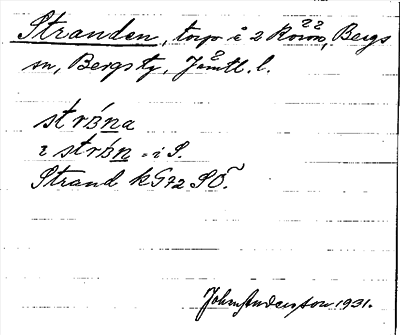 Stranden, torp i 2 Rörön, Bergs
sn, Bergs tg, Jämtl. l.
strɜna
i strɜn - i S.
Strand kG72 SÖ.
John Anderson 1931.